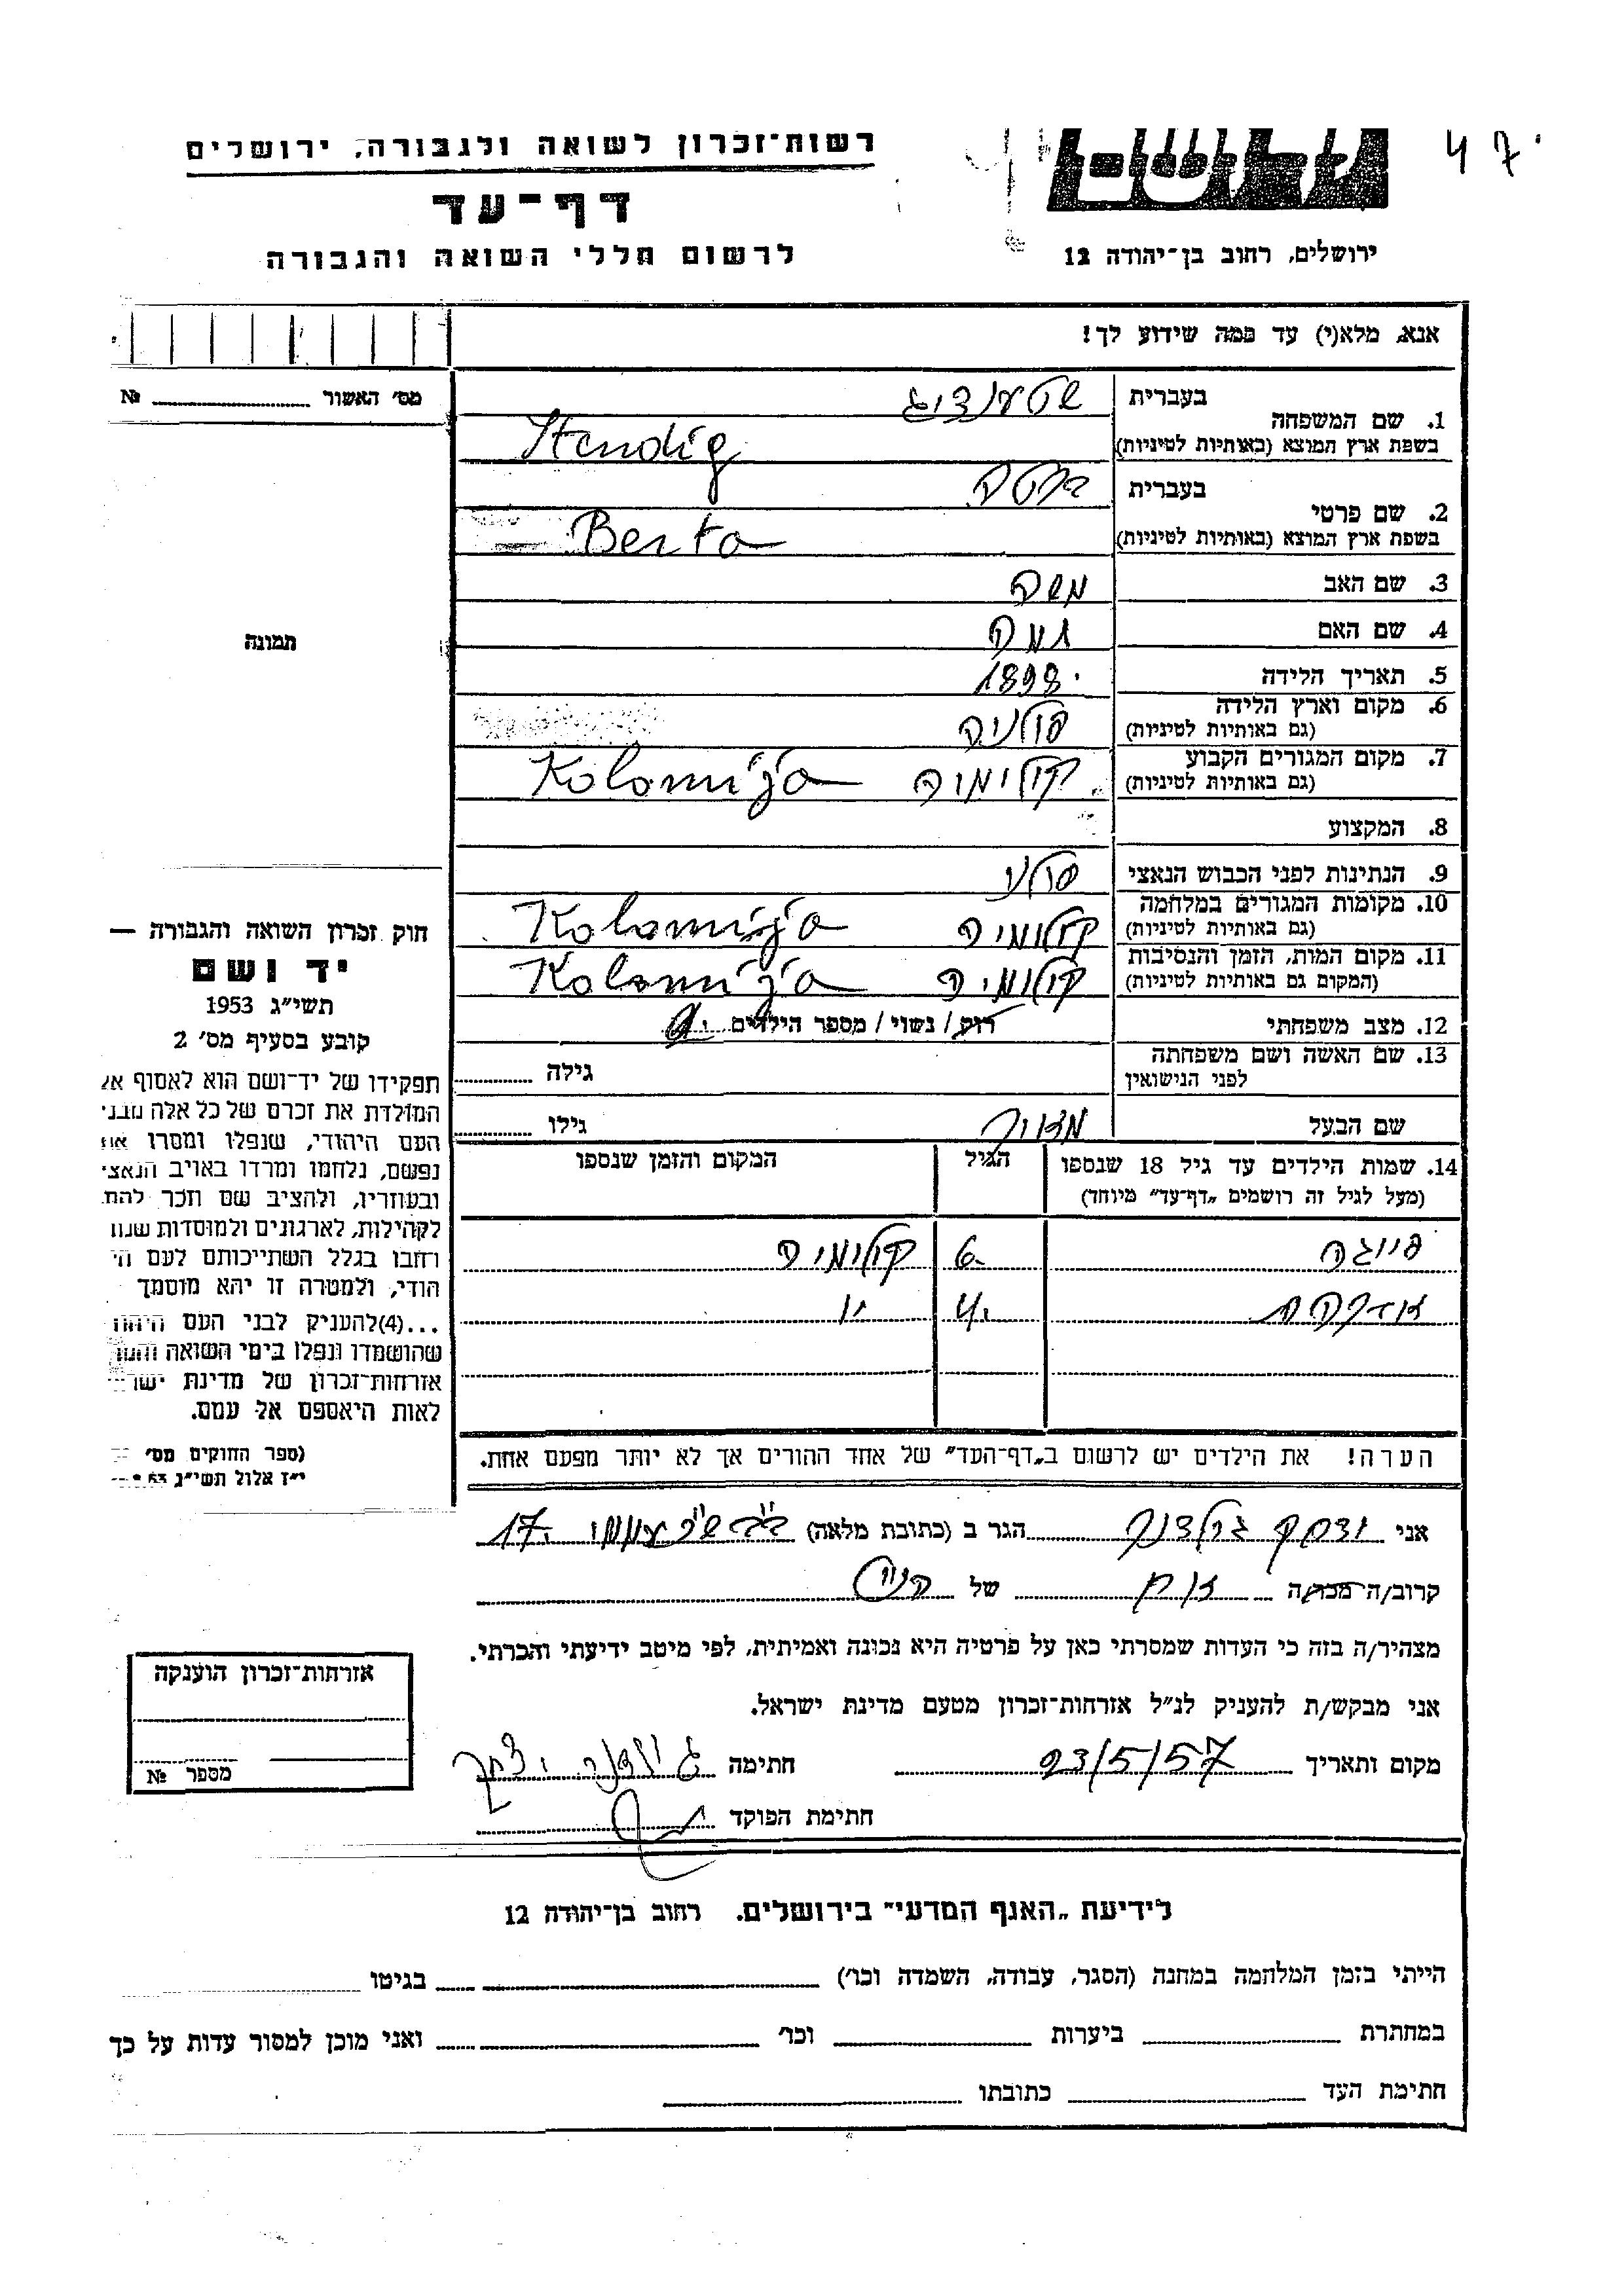 47
רשות־זכרון לשואה ולגבורה, ירושלים
דף־עד
לרשום חללי השואה והגבורה
ירושלים, רחוב בן־יהודה 12
אנא, מלא(י) עד כמה שידוע לך!
מס' האשור № 
1. שם המשפחה בעברית שטענדיג
בשפת ארץ המוצא (באותיות לטיניות) Stendig
2. שם פרטי בעברית ברטה
בשפת ארץ המוצא (באותיות לטיניות) Berta
3. שם האב משה
4. שם האם
5. תאריך הלידה 1898
6. מקום וארץ הלידה (גם באותיות לטיניות) פולניה
7. מקום המגורים הקבוע (גם באותיות לטיניות) קולימיה Kolomija
8. המקצוע
9. הנתינות לפני הכבוש הנאצי פולני
10. מקומות המגורים במלחמה (גם באותיות לטיניות) קולומיה Kolomija
11. מקום המות, הזמן והנסיבות (המקום גם באותיות לטיניות) קולומיה Kolomija
12. מצב משפחתי רוק / נשוי / מספר הילדים
13. שם האשה ושם משפחתה לפני הנישואין גילה
שם הבעל גילו
14. שמות הילדים עד גיל 18 שנספו (מעל לגיל זה רושמים „דף־עד" מיוחד) הגיל המקום והזמן שנספו
פייגה 6 קולומיה
4 "
הערה! את הילדים יש לרשום ב„דף־העד" של אחד ההורים אך לא יותר מפעם אחת.
תמונה
חוק זכרון השואה והגבורה —
יד ושם
תשי"ג 1953
קובע בסעיף מס' 2
תפקידו של יד־ושם הוא לאסוף אל
המולדת את זכרם של כל אלה מבני
העם היהודי, שנפלו ומסרו את
נפשם, נלחמו ומרדו באויב הנאצי
ובעוזריו, ולהציב שם וזכר להם,
לקהילות, לארגונים ולמוסדות שנח
רחבו בגלל השתייכותם לעם הי
הודי, ולמטרה זו יהא מוסמך
...(4) להעניק לבני העם היהודי
שהושמדו ונפלו בימי השואה והמרי
אזרחות־זכרון של מדינת ישראל
לאות היאספם אל עמם.
(ספר החוקים מס'
י"ז אלול תשי"ג 53
אני יצחק גולדנר הגר ב (כתובת מלאה) 17
קרוב/ה מכר/ה של
מצהיר/ה בזה כי העדות שמסרתי כאן על פרטיה היא נכונה ואמיתית, לפי מיטב ידיעתי והכרתי.
אני מבקש/ת להעניק לנ"ל אזרחות־זכרון מטעם מדינת ישראל.
מקום ותאריך 23/5/57 חתימה גולדנר יצחק
חתימת הפוקד
אזרחות־זכרון הוענקה
מספר №
לידיעת „האגף המדעי" בירושלים, רחוב בן־יהודה 12
הייתי בזמן המלחמה במחנה (הסגר, עבודה, השמדה וכו') בגיטו
במחתרת ביערות וכו' ואני מוכן למסור עדות על כך
חתימת העד כתובתו